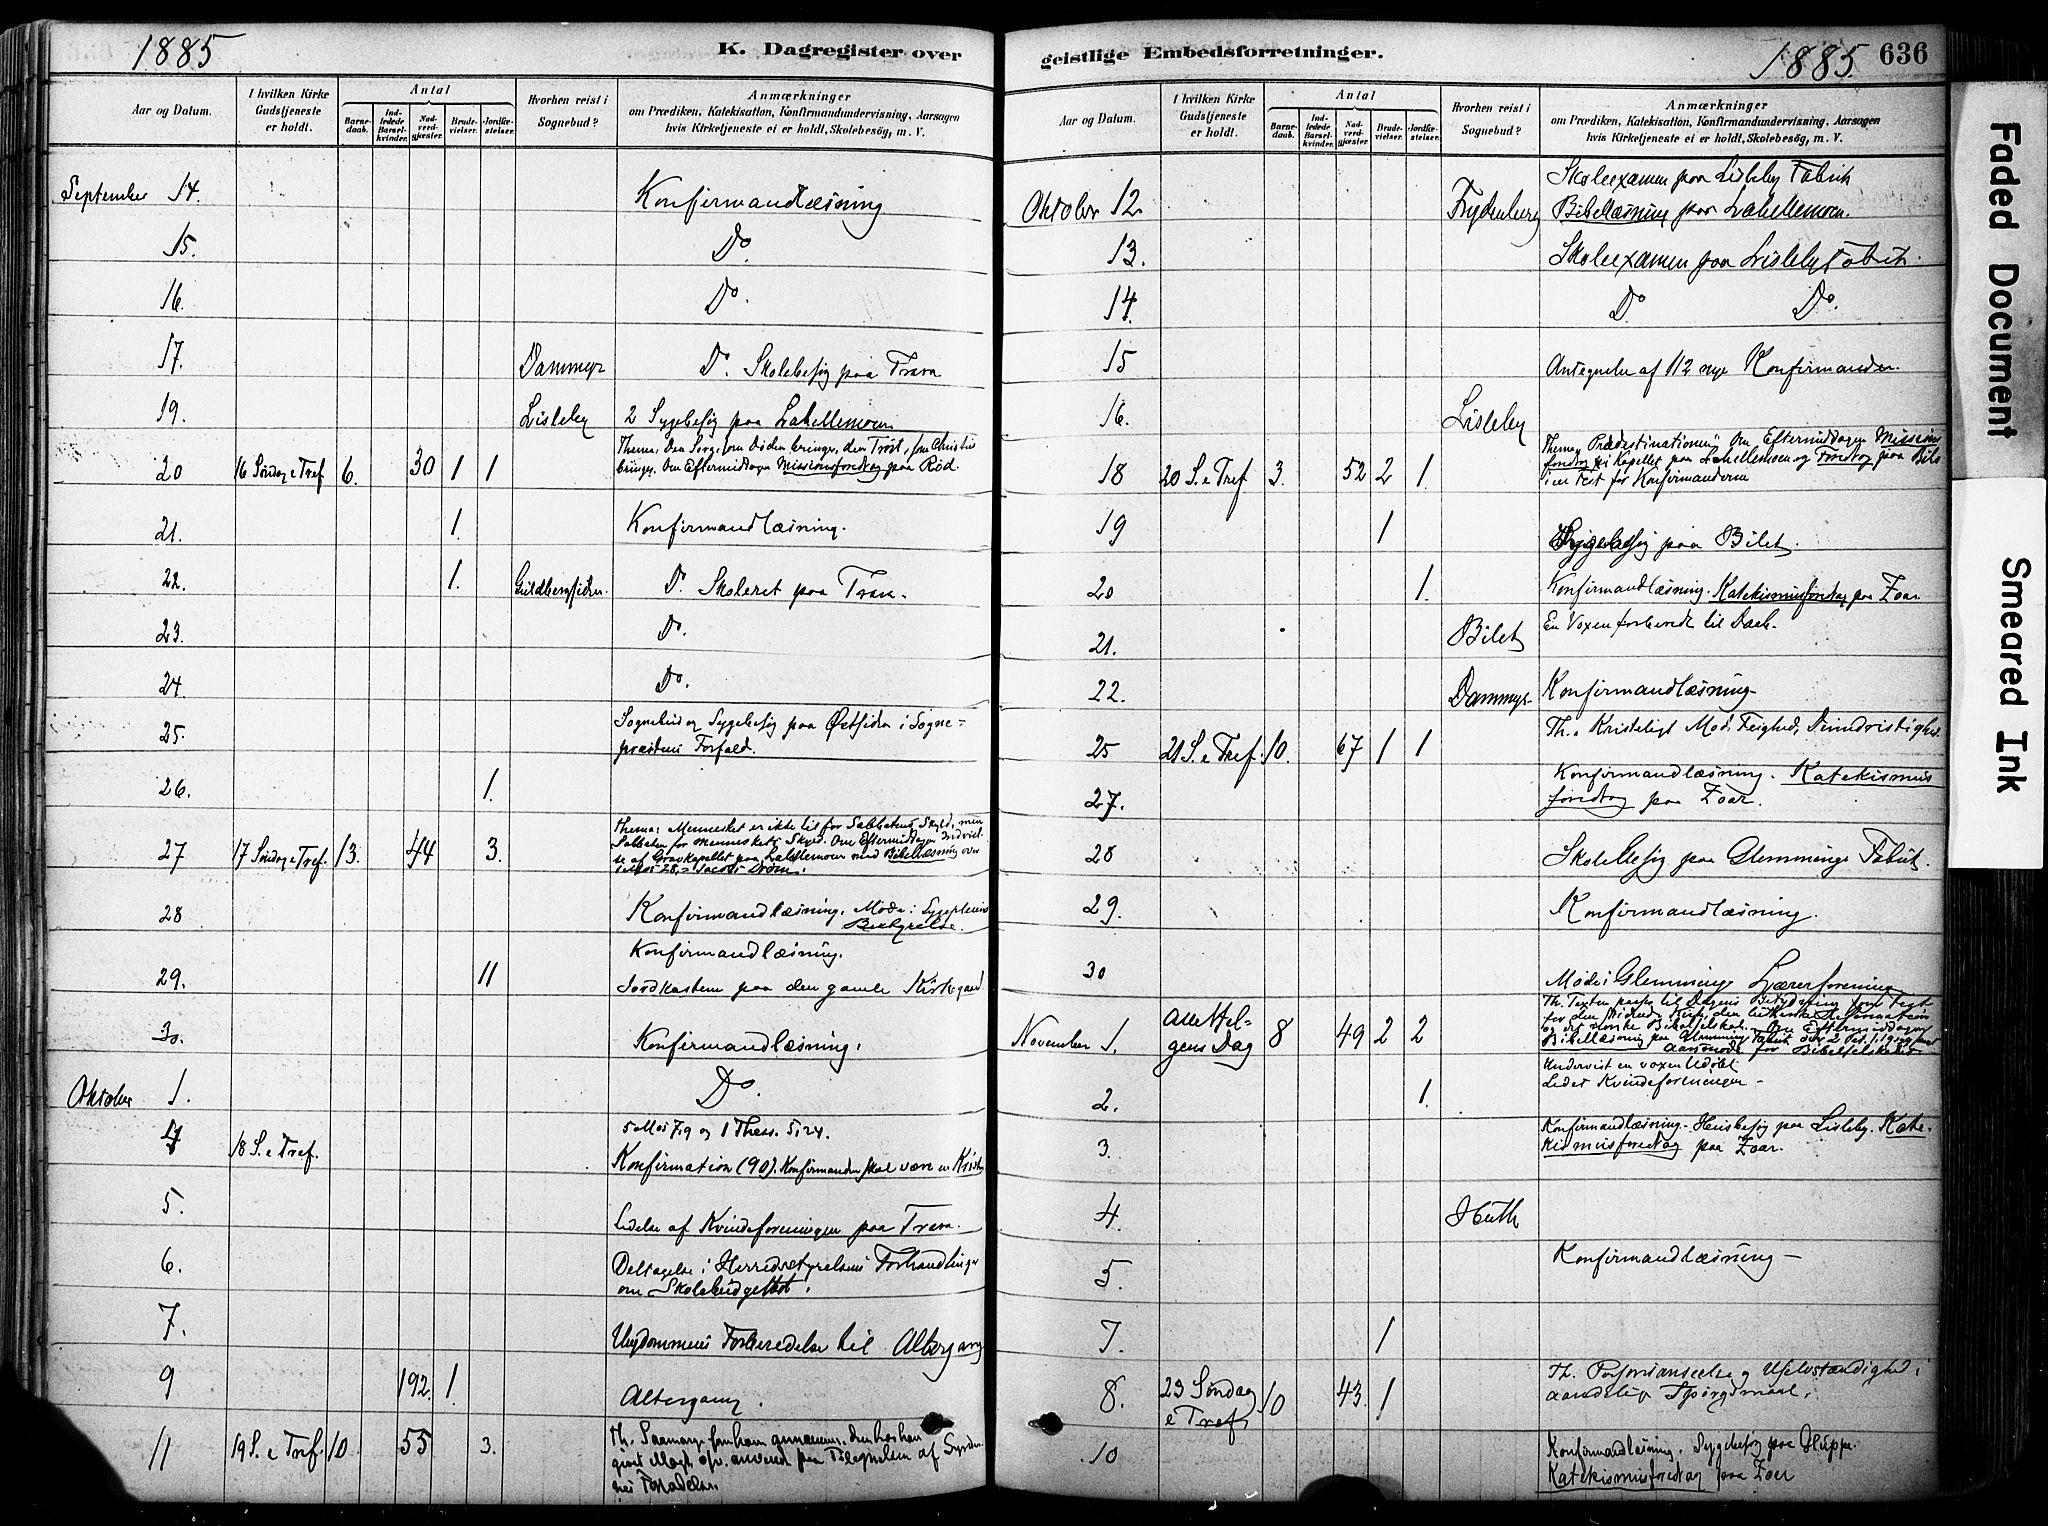 1885
K. Dagregister over
Aar og Datum.
I hvilken Kirke Gudstjeneste er holdt.
Antal
Barnedaab.
Indledede Barselkvinder.
Nadverdgjæster.
Brudevielser.
Jordfæstelser.
Hvorhen reist i Sognebud?
Anmærkninger
om Prædiken, Katekisation, Konfirmandundervisning, Aarsagen
hvis Kirketjeneste ei er holdt, Skolebesög, m. V.
September 14. Konfirmandlæsning
15. Do.
16. Do.
17. Dammyr Do. Skolebesøg paa Trara
19. Lisleby 2 Sygebesøg paa Lahellemoen
20 16 Søndag e Tref 6. 30 1 1 Thema: Den Sorg, som Døden bringer, den Trøst, som Christus
bringer. Om Eftermiddagen Missionsforedrag paa Rød.
21. 1. Konfirmandlæsning.
22. 1. Guldbergsiden Do. Skoleret paa Trara.
23. Do.
24. Do.
25. Sognebud og Sygebesøg paa Østsiden i Sogne=
præstens Forfald.
26. 1.
27 17 Søndag e Tref. 13. 44 3. Thema: Mennesket er ikke til for Sabbatens Skyld, men
Sabbaten for Menneskets Skyld. Om Eftermiddagen Indviel-
se af Gravkapellet paa Lahellemoen med Bibellæsning over
1 Mos 28, Jacobs Drøm.
28 Konfirmandlæsning. Møde i Sygepleiens
Bestyrelse.
29. 11 Konfirmandlæsning.
Jordkasten paa den gamle Kirkegaard
30. Konfirmandlæsning.
Oktober 1. Do.
4 18 S. e Tref. 5 Mos 7,9 og 1 Thess. 5,24.
Konfirmation (90). Konfirmanden skal være en
5. Ledelse af Kvindeforeningen paa Trara.
6. Deltagelse i Herredsstyrelsens Forhandlinger
om Skolebudgettet.
7. Ungdommens Forberedelse til Altergang
9 192. 1. Altergang.
11 19 S. e Tref. 10. 55 3. Th.
geistlige Embedsforretninger.
1885. 636
Aar og Datum.
I hvilken Kirke Gudstjeneste er holdt.
Antal
Barnedaab.
Indledede Barselkvinder.
Nadverdgjæster.
Brudevielser.
Jordfæstelser.
Hvorhen reist i Sognebud?
Anmærkninger
om Prædiken, Katekisation, Konfirmandundervisning, Aarsagen
hvis Kirketjeneste ei er holdt, Skolebesög, m. V.
Oktober 12. Frydenberg Skoleexamen paa Lisleby Fabrik
Bibellæsning paa Lahellemoen.
13. Skoleexamen paa Lisleby Fabrik.
14. Do. Do.
15 Antegnelse af 112 nye Konfirmander.
16. Lisleby
18 20 S. e Tref 3. 52 2 1. Thema Prædestinationen. Om Eftermiddagen Missions
foredrag i Kapellet paa Lahellemoen og Foredrag paa
for Konfirmanderne
19 1 Sygebesøg paa Bilet.
20 1. Konfirmandlæsning. Katekismusforedrag paa Zoar
21. Bilet En Voxen forberedt til Daab.
22. Dammyr Konfirmandlæsning
25 21 S. e Tref. 10. 67 1 1 Th. Kristeligt Mod, Feighed, Dumdristighed.
27. Konfirmandlæsning. Katekismus
foredrag paa Zoar.
28 Skolebesøg paa Glemminge Fabrik.
29. Konfirmandlæsning.
30 Møde i Glemminge Lærerforening
November 1. Alle Hel=
gens Dag 8 49 2 2 Th. Texten
Om Eftermiddagen
Bibellæsning paa Glemminge Fabrik over 2 Pet. 1,19
Aarsmøde for Bibelselskabet
2. 1. Undervist en voxen Udøbt
Ledet Kvindeforeningen
3. Konfirmandlæsning. Husbesøg paa Lisleby. Kate-
kismusforedrag paa Zoar.
4. Huth
5. Konfirmandlæsning
7. 1
8. 23 Søndag
e Tref. 10 43. 1 Th. Personsanseelse og Uselvstændighed i
aandelige Spørgsmaal.
10 Konfirmandlæsning. Sygebesøg paa Gluppe.
Katekismusforedrag paa Zoar
Faded Document
Smeared Ink